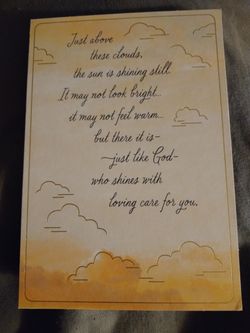 Just above
these clouds,
the sun is shining still.
It may not look bright...
it may not feel warm...
but there it is—
—just like God—
who shines with
loving care for you.